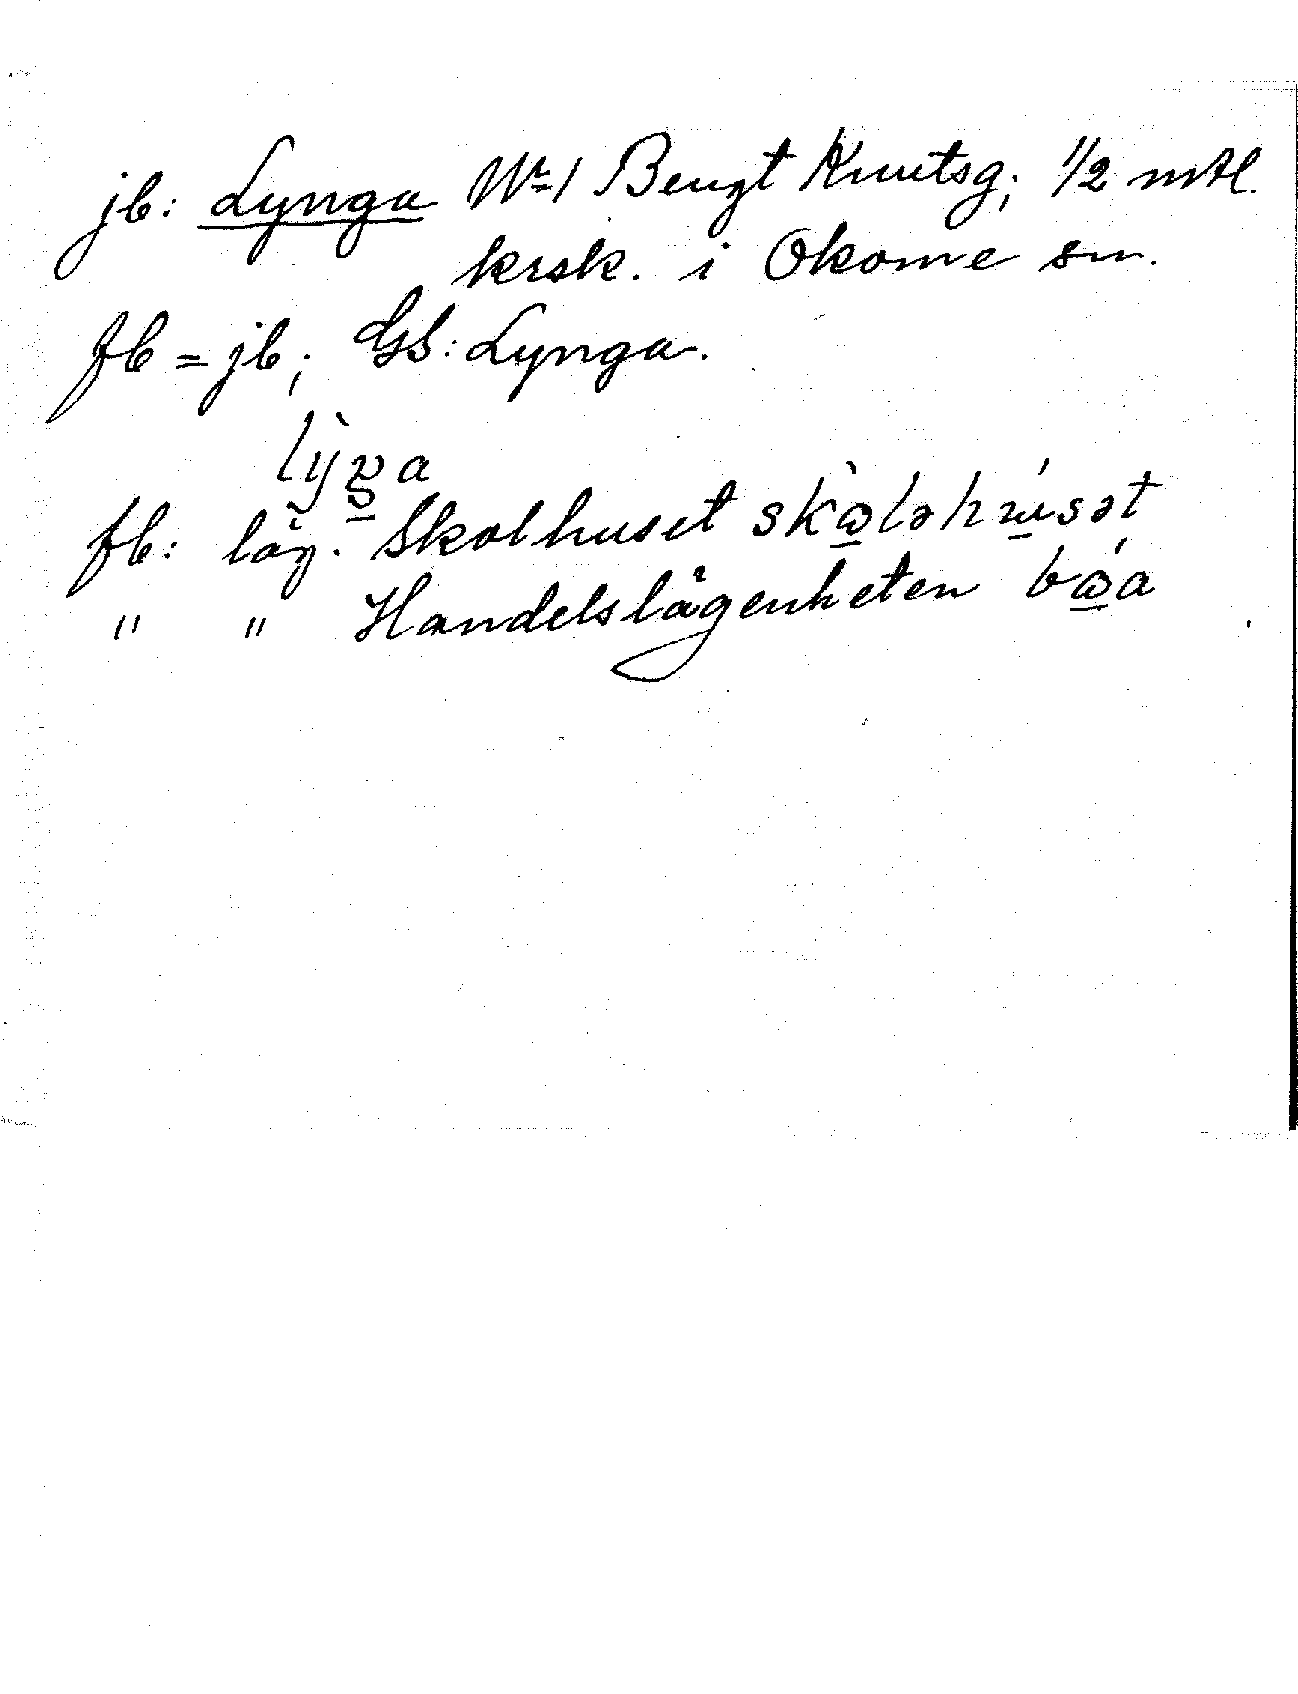 jb: Lynga Nr 1 Bengt Knutsg; 1/2 mtl.
krsk. i Okome sn.
fb = jb; GS: Lynga.
lỳŋa
fb: läg. Skolhuset skɷ̀ləhúsət
" " Handelslägenheten bɷ́a